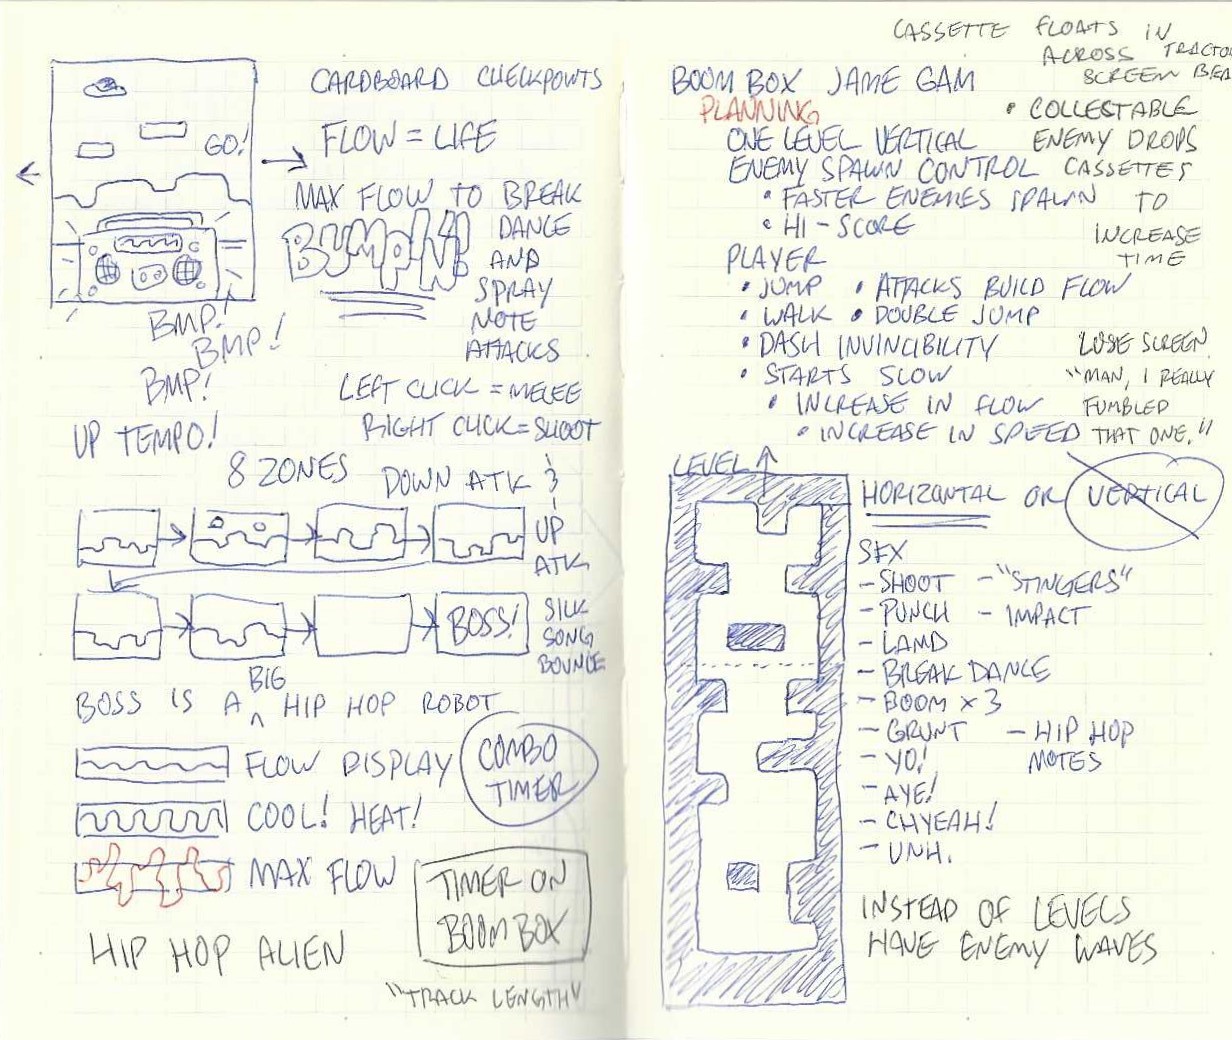 CARDBOARD CHECKPOINTS
GO!
FLOW = LIFE
MAX FLOW TO BREAK
DANCE
AND
SPRAY
NOTE
ATTACKS
BUMPIN!
BMP!
BMP!
BMP!
UP TEMPO!
LEFT CLICK = MELEE
RIGHT CLICK = SHOOT
8 ZONES
DOWN ATK &
UP
ATK
SILK
SONG
BOUNCE
BOSS!
BOSS IS A BIG HIP HOP ROBOT
FLOW DISPLAY
COOL! HEAT!
MAX FLOW
COMBO
TIMER
TIMER ON
BOOM BOX
HIP HOP ALIEN
"TRACK LENGTH"
CASSETTE FLOATS IN
ACROSS TRACTO
SCREEN BEA
BOOM BOX JAME GAM
PLANNING
ONE LEVEL VERTICAL
ENEMY SPAWN CONTROL
• FASTER ENEMIES SPAWN
• HI-SCORE
• COLLESTABLE
ENEMY DROPS
CASSETTES
TO
INCREASE
TIME
PLAYER
• JUMP • ATTACKS BUILD FLOW
• WALK • DOUBLE JUMP
• DASH INVINCIBILITY
• STARTS SLOW
• INCREASE IN FLOW
• INCREASE IN SPEED
LOSE SCREEN
"MAN, I REALLY
FUMBLED
THAT ONE."
LEVEL
HORIZONTAL OR VERTICAL
SFX
- SHOOT - "STINGERS"
- PUNCH - IMPACT
- LAND
- BREAK DANCE
- BOOM x 3
- GRUNT - HIP HOP
- YO! NOTES
- AYE!
- CHYEAH!
- UNH.
INSTEAD OF LEVELS
HAVE ENEMY WAVES